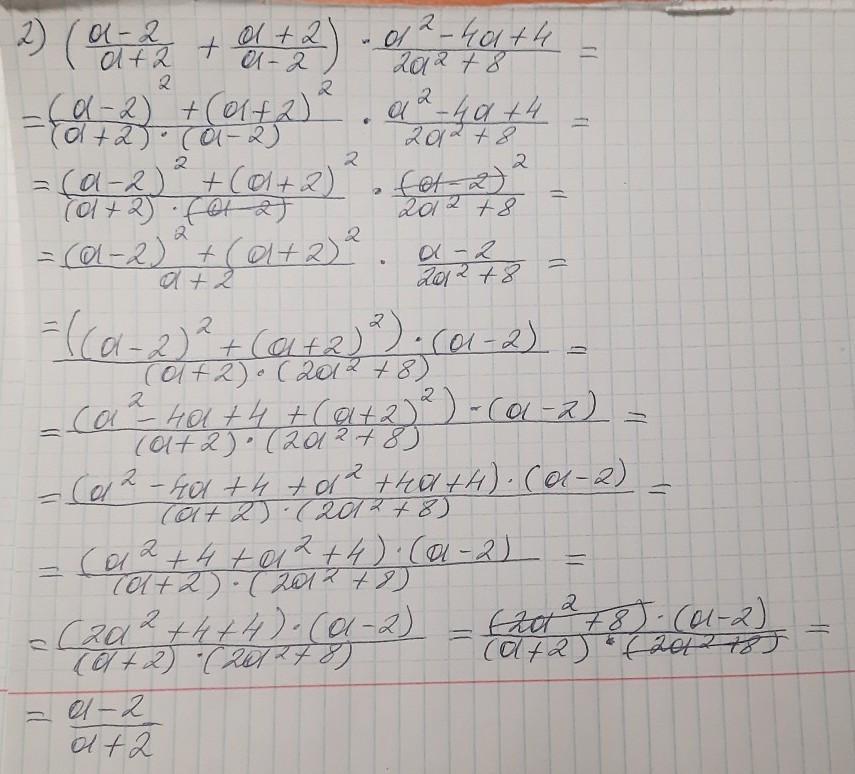 2) ((a-2)/(a+2) + (a+2)/(a-2)) · (a²-4a+4)/(2a²+8) =
= ((a-2)²+(a+2)²)/((a+2)·(a-2)) · (a²-4a+4)/(2a²+8) =
= ((a-2)²+(a+2)²)/((a+2)·(a-2)) · (a-2)²/(2a²+8) =
= ((a-2)²+(a+2)²)/(a+2) · (a-2)/(2a²+8) =
= (((a-2)²+(a+2)²)·(a-2))/((a+2)·(2a²+8)) =
= ((a²-4a+4+(a+2)²)·(a-2))/((a+2)·(2a²+8)) =
= ((a²-4a+4+a²+4a+4)·(a-2))/((a+2)·(2a²+8)) =
= ((a²+4+a²+4)·(a-2))/((a+2)·(2a²+8)) =
= ((2a²+4+4)·(a-2))/((a+2)·(2a²+8)) = ((2a²+8)·(a-2))/((a+2)·(2a²+8)) =
= (a-2)/(a+2)